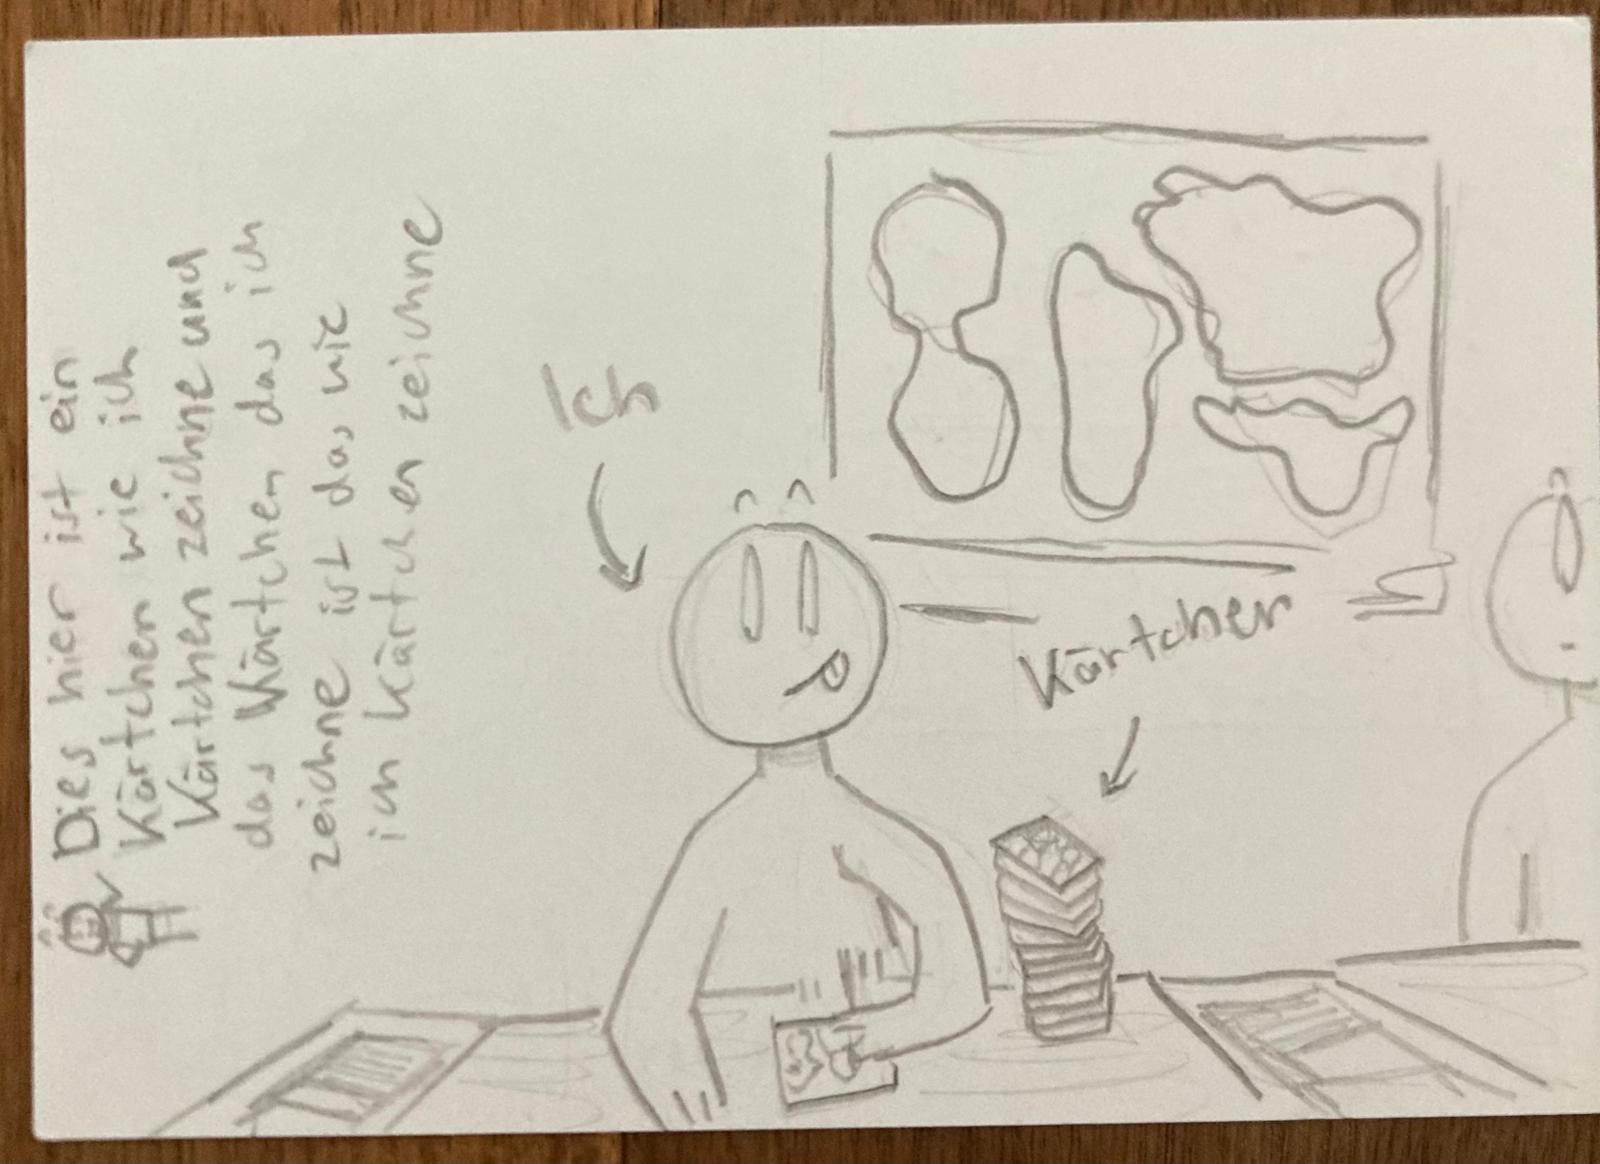 Dies hier ist ein
Kärtchen wie ich
Kärtchen zeichne und
das Kärtchen das ich
zeichne ist das wie
ich Kärtchen zeichne
Ich
Kärtchen